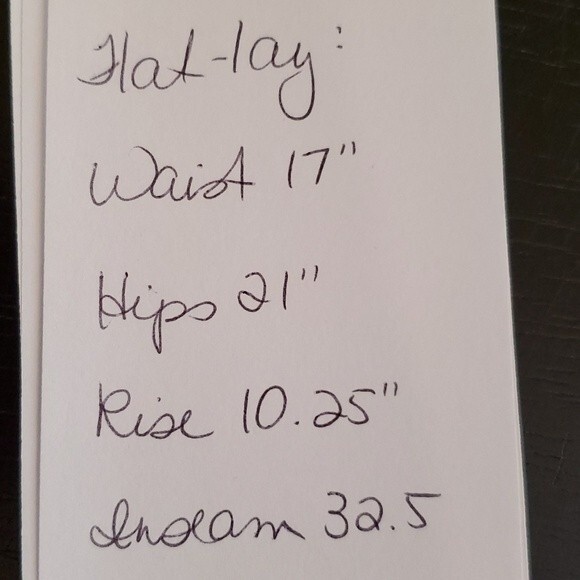 Flat-lay:
Waist 17"
Hips 21"
Rise 10.25"
Inseam 32.5